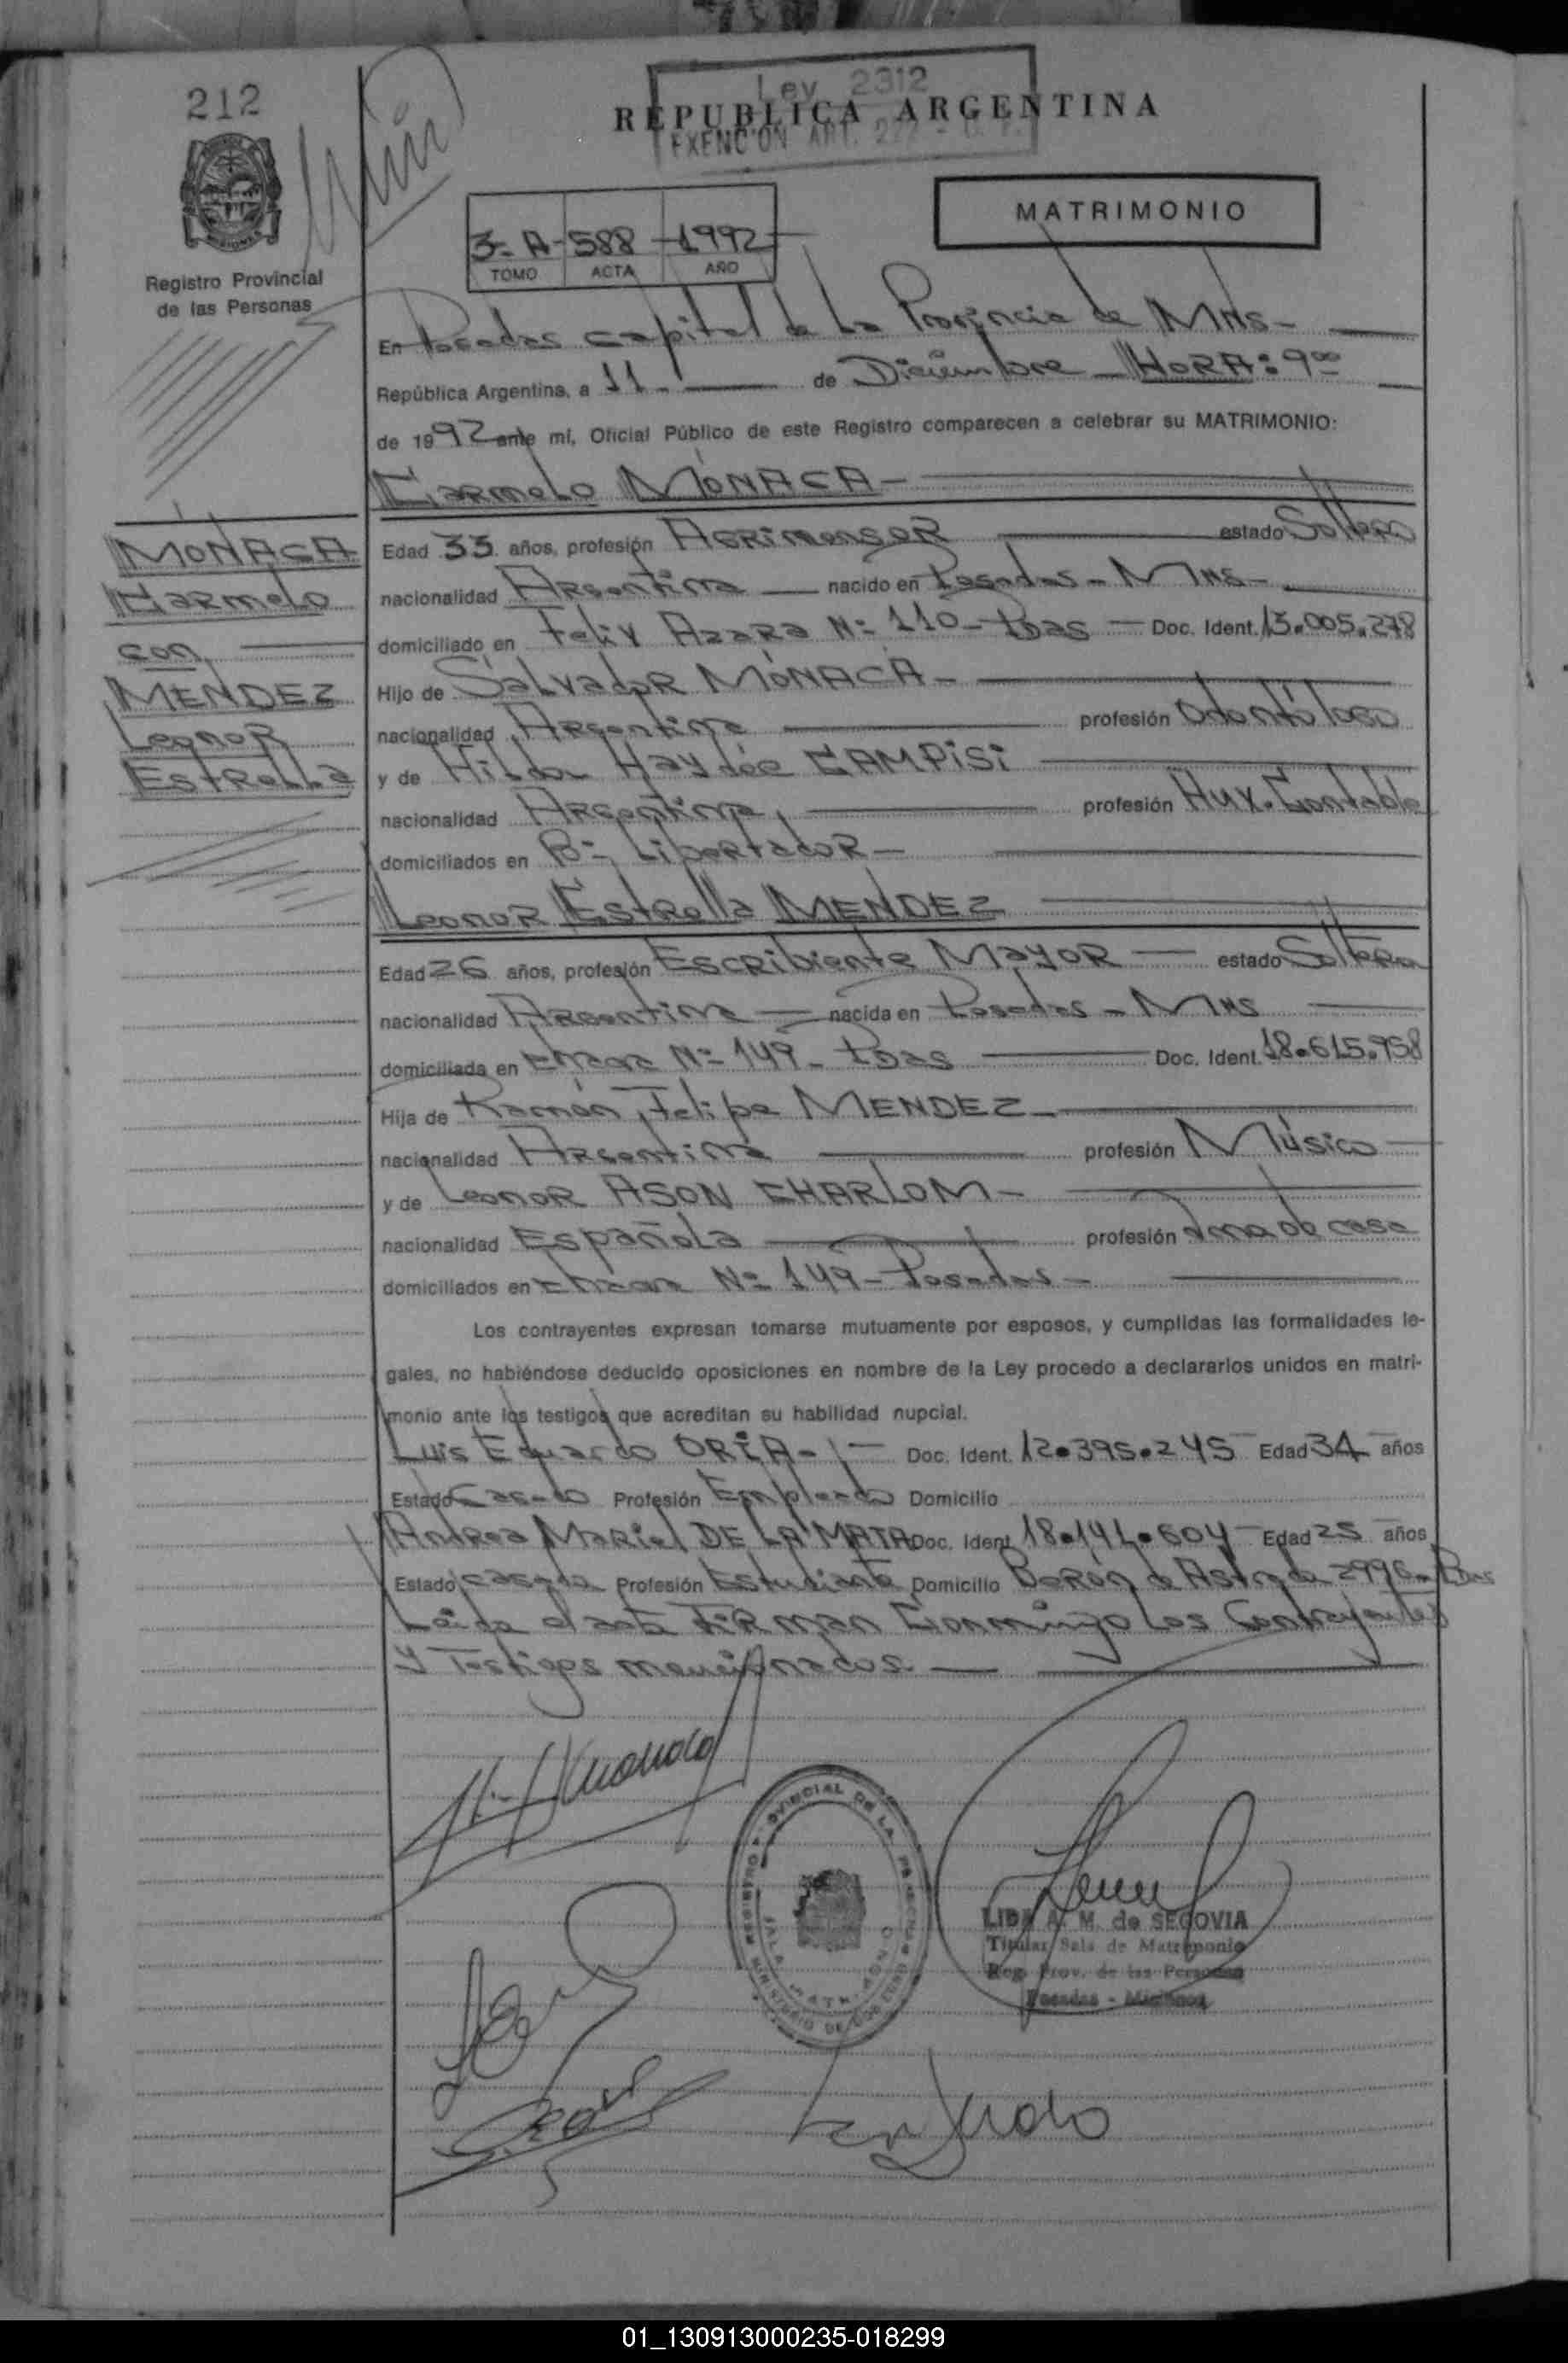 212
Ley 2312
REPUBLICA ARGENTINA
EXENCION ART.
MATRIMONIO
3- A - 588 - 1992
TOMO ACTA AÑO
Registro Provincial
de las Personas
En Posadas capital de La Provincia de MNS-
República Argentina, a 11- de Diciembre - HORA: 9⁰⁰
de 1992 ante mí, Oficial Público de este Registro comparecen a celebrar su MATRIMONIO:
Carmelo MÓNACA-
MONACA
Carmelo
con
MENDEZ
Leonor
Estrella
Edad 33 años, profesión Agrimensor estado Soltero
nacionalidad Argentina nacido en Posadas - MNS-
domiciliado en Felix Azara Nº 110 - Pdas - Doc. Ident. 13.005.278
Hijo de Salvador MÓNACA-
nacionalidad Argentina profesión Odontólogo
y de Hilda Haydée CAMPISI
nacionalidad Argentina, profesión Aux. Contable
domiciliados en Bº Libertador-
Leonor Estrella MENDEZ
Edad 26 años, profesión Escribiente Mayor - estado Soltera
nacionalidad Argentina nacida en Posadas - MNS
domiciliada en Nº 149 - Pdas Doc. Ident. 18.615.958
Hija de Ramón Felipe MENDEZ-
nacionalidad Argentina profesión Músico
y de Leonor ASON CHARLOM-
nacionalidad Española profesión Ama de casa
domiciliados en Nº 149 - Posadas-
Los contrayentes expresan tomarse mutuamente por esposos, y cumplidas las formalidades le-
gales, no habiéndose deducido oposiciones en nombre de la Ley procedo a declararlos unidos en matri-
monio ante los testigos que acreditan su habilidad nupcial.
Luis Eduardo ORIA- Doc. Ident. 12.395.245 Edad 34 años
Estado Casado Profesión Empleado Domicilio
Andrea Mariel DE LA MATA Doc. Ident. 18.141.604 Edad 25 años
Estado casada Profesión Estudiante Domicilio Berón de Astrada 2996 - Pdas
Leída el acta FIRMAN Conmigo Los Contrayentes
y Testigos mencionados.
REGISTRO PROVINCIAL DE LAS PERSONAS
MINISTERIO DE GOBIERNO
SALA MATRIMONIO
LIDA A. M. de SEGOVIA
Titular Sala de Matrimonio
Reg. Prov. de las Personas
Posadas - Misiones
01_130913000235-018299